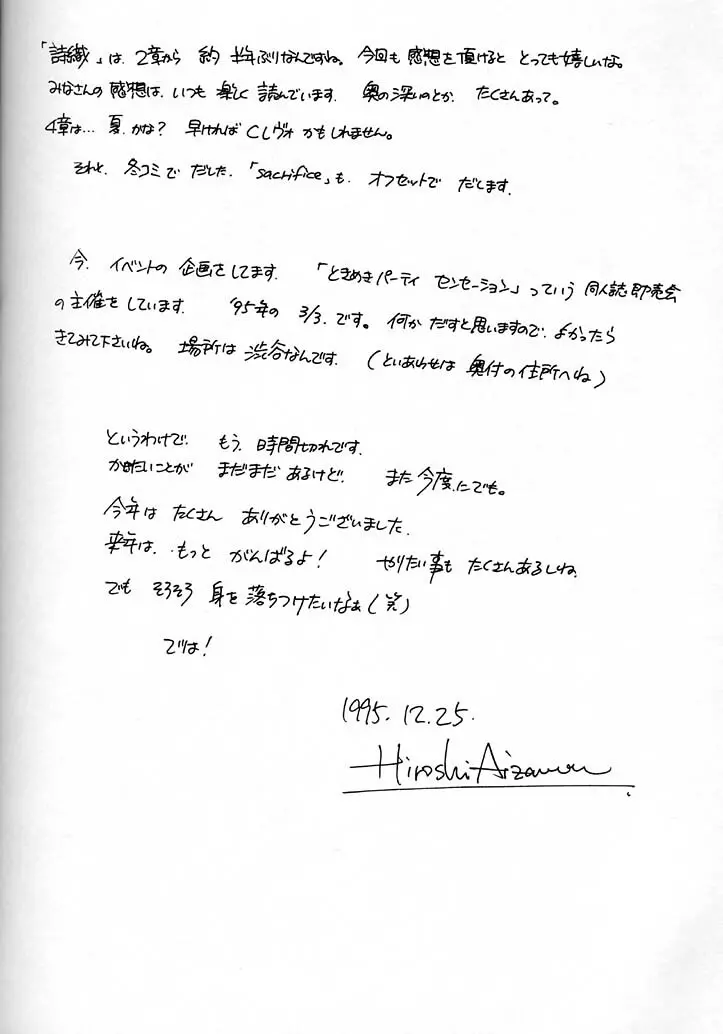 「詩織」は、2章から 約 半年ぶりなんですね。今回も 感想を頂けると とっても嬉しいな。
みなさんの 感想は、いつも 楽しく 読んでいます. 奥の深いのとか、たくさんあって。
4章は… 夏.かな? 早ければ CLヴォ かもしれません。
それと、冬コミで だした.「Sacrifice」も、オフセットで だします.
今. イベントの 企画をしてます. 「ときめきパーティ センセーション」っていう 同人誌即売会
の主催をしています. '95年の 3/3. です。何か だすと思いますので、よかったら
きてみて下さいね。場所は 渋谷なんです. (といあわせは 奥付の住所へね)
というわけで、もう、時間切れです.
かきたいことが まだまだ あるけど、また 今度にでも。
今年は たくさん ありがとうございました.
来年は、もっと がんばるよ! やりたい事も たくさんあるしね.
でも そろそろ 身を 落ちつけたいなぁ(笑)
では!
1995.12.25.
Hiroshi Aizawa